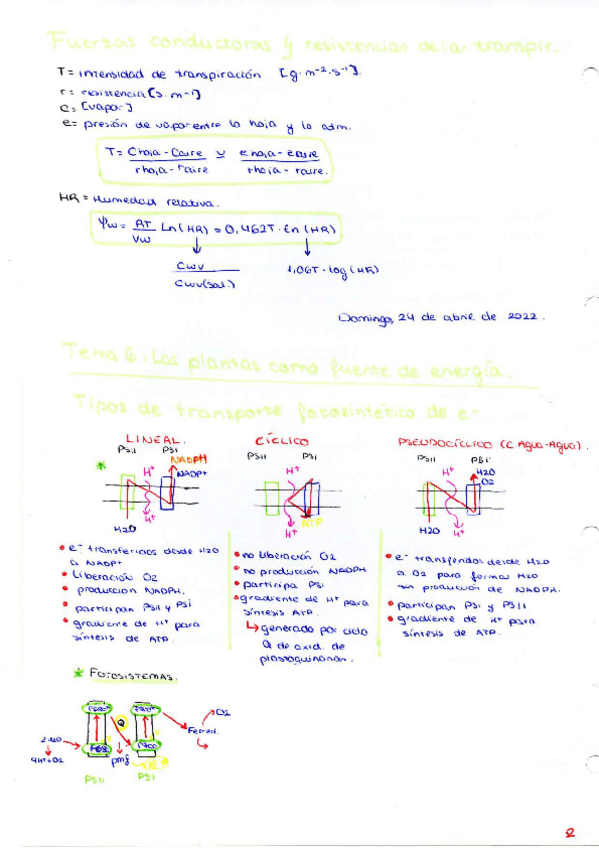 Fuerzas conductoras y resistencias de la transpir.
T = intensidad de transpiración [g·m⁻²·s⁻¹].
r = resistencia [s.m⁻¹]
C = [vapor]
e = presión de vapor entre la hoja y la atm.
T = Choja - Caire / rhoja - raire y ehoja - eaire / rhoja - raire.
HR = Humedad relativa.
Ψw = RT/Vw Ln(HR) = 0,462T · Ln(HR)
Cwv / Cwv(sat.)
1,06T · log(HR)
Domingo, 24 de abril de 2022.
Tema 6: Las plantas como fuente de energía.
Tipos de transporte fotosintético de e-
LINEAL. CÍCLICO PSEUDOCÍCLICO (C. Agua-Agua).
PSII PSI PSII PSI PSII PSI
NADPH
* H+ NADP+ H+ H+ H2O
O2
H+ ATP
H2O H+ H2O H+
• e- transferidos desde H2O
a NADP+
• Liberación O2
• producción NADPH.
• participan PSII y PSI
• gradiente de H+ para
síntesis de ATP.
• no liberación O2
• no producción NADPH
• participa PSI
• gradiente de H+ para
síntesis ATP.
↳ generado por ciclo
Q de oxid. de
plastoquinonan.
• e- transferidos desde H2O
a O2 para formar H2O
sin producción de NADPH.
• participan PSI y PSII
• gradiente de H+ para
síntesis de ATP.
* FOTOSISTEMAS.
P680* P700* O2
Q Ferred.
2H2O P680 P700
4H+O2 pmf
PSII PSI
2